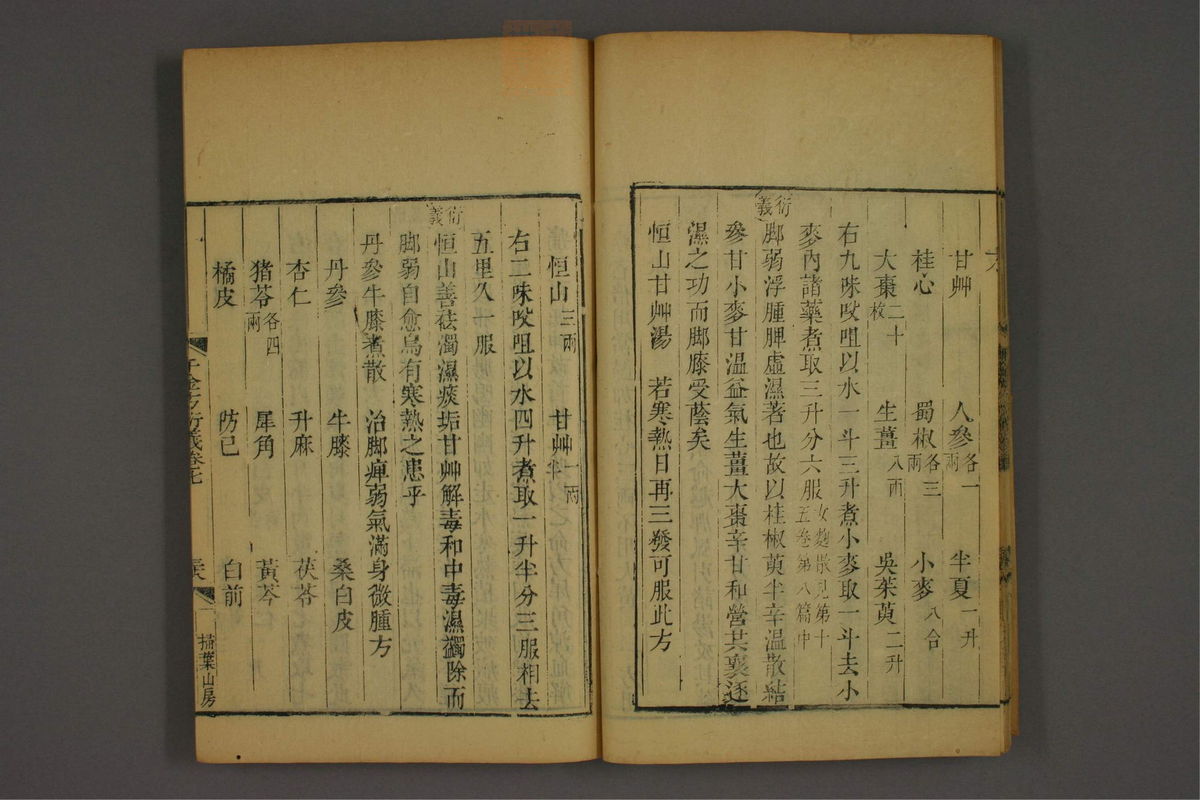 甘艸　人參各一兩　半夏一升
桂心　蜀椒各三兩　小麥八合
大棗二十枚　生薑八兩　吳茱萸二升
右九味㕮咀以水一斗三升煮小麥取一斗去小
麥內諸藥煮取三升分六服女麴散見第十五卷第八篇中
衍義　脚弱浮腫脾虛濕著也故以桂椒萸半辛溫散結
參甘小麥甘溫益氣生薑大棗辛甘和營共襄逐
濕之功而脚膝受蔭矣
恒山甘艸湯　若寒熱日再三發可服此方
恒山三兩　甘艸一兩半
右二味㕮咀以水四升煮取一升半分三服相去
五里久一服
衍義　恒山善祛濁濕痰垢甘艸解毒和中毒濕蠲除而
脚弱自愈烏有寒熱之患乎
丹參牛膝煮散　治脚痺弱氣滿身微腫方
丹參　牛膝　桑白皮
杏仁　升麻　茯苓
猪苓各四兩　犀角　黃芩
橘皮　防已　白前
千金方衍義卷七
掃葉山房